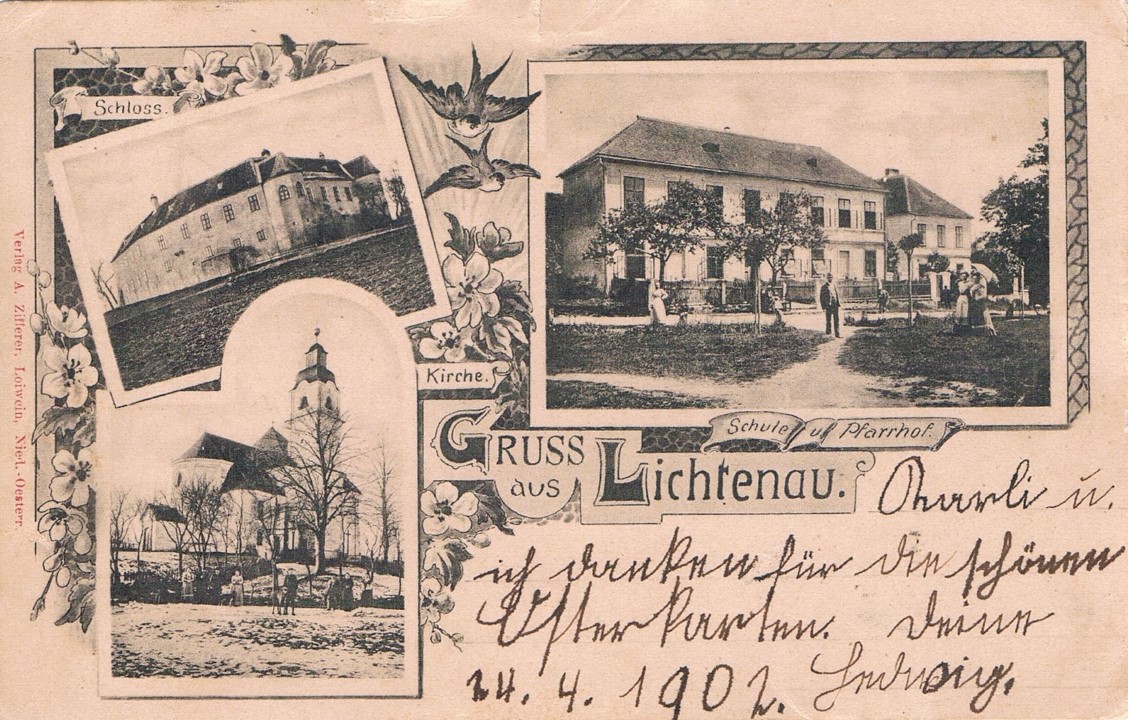 Schloss.
Kirche.
Schule u. Pfarrhof.
GRUSS
aus Lichtenau.
Verlag A. Zifferer, Loiwein, Nied.-Oesterr.
Karli u.
ich danken für die schönen
Osterkarten. Deine
24. 4. 1902. Hedwig.